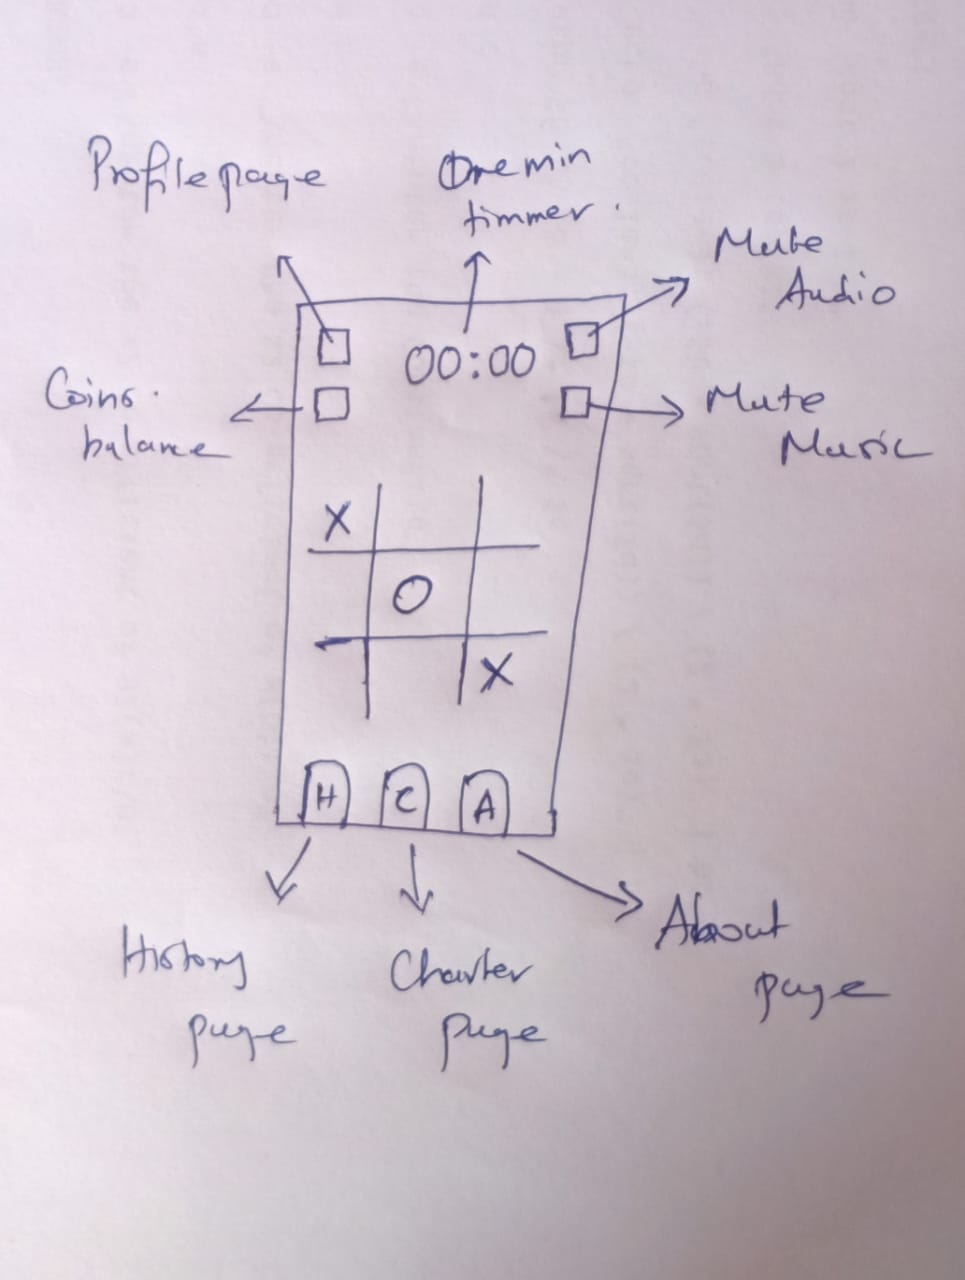 Profile page
One min
timmer.
Mute
Audio
00:00
Coins.
balance
Mute
Music
X
O
X
H C A
History
page
Charter
page
About
page